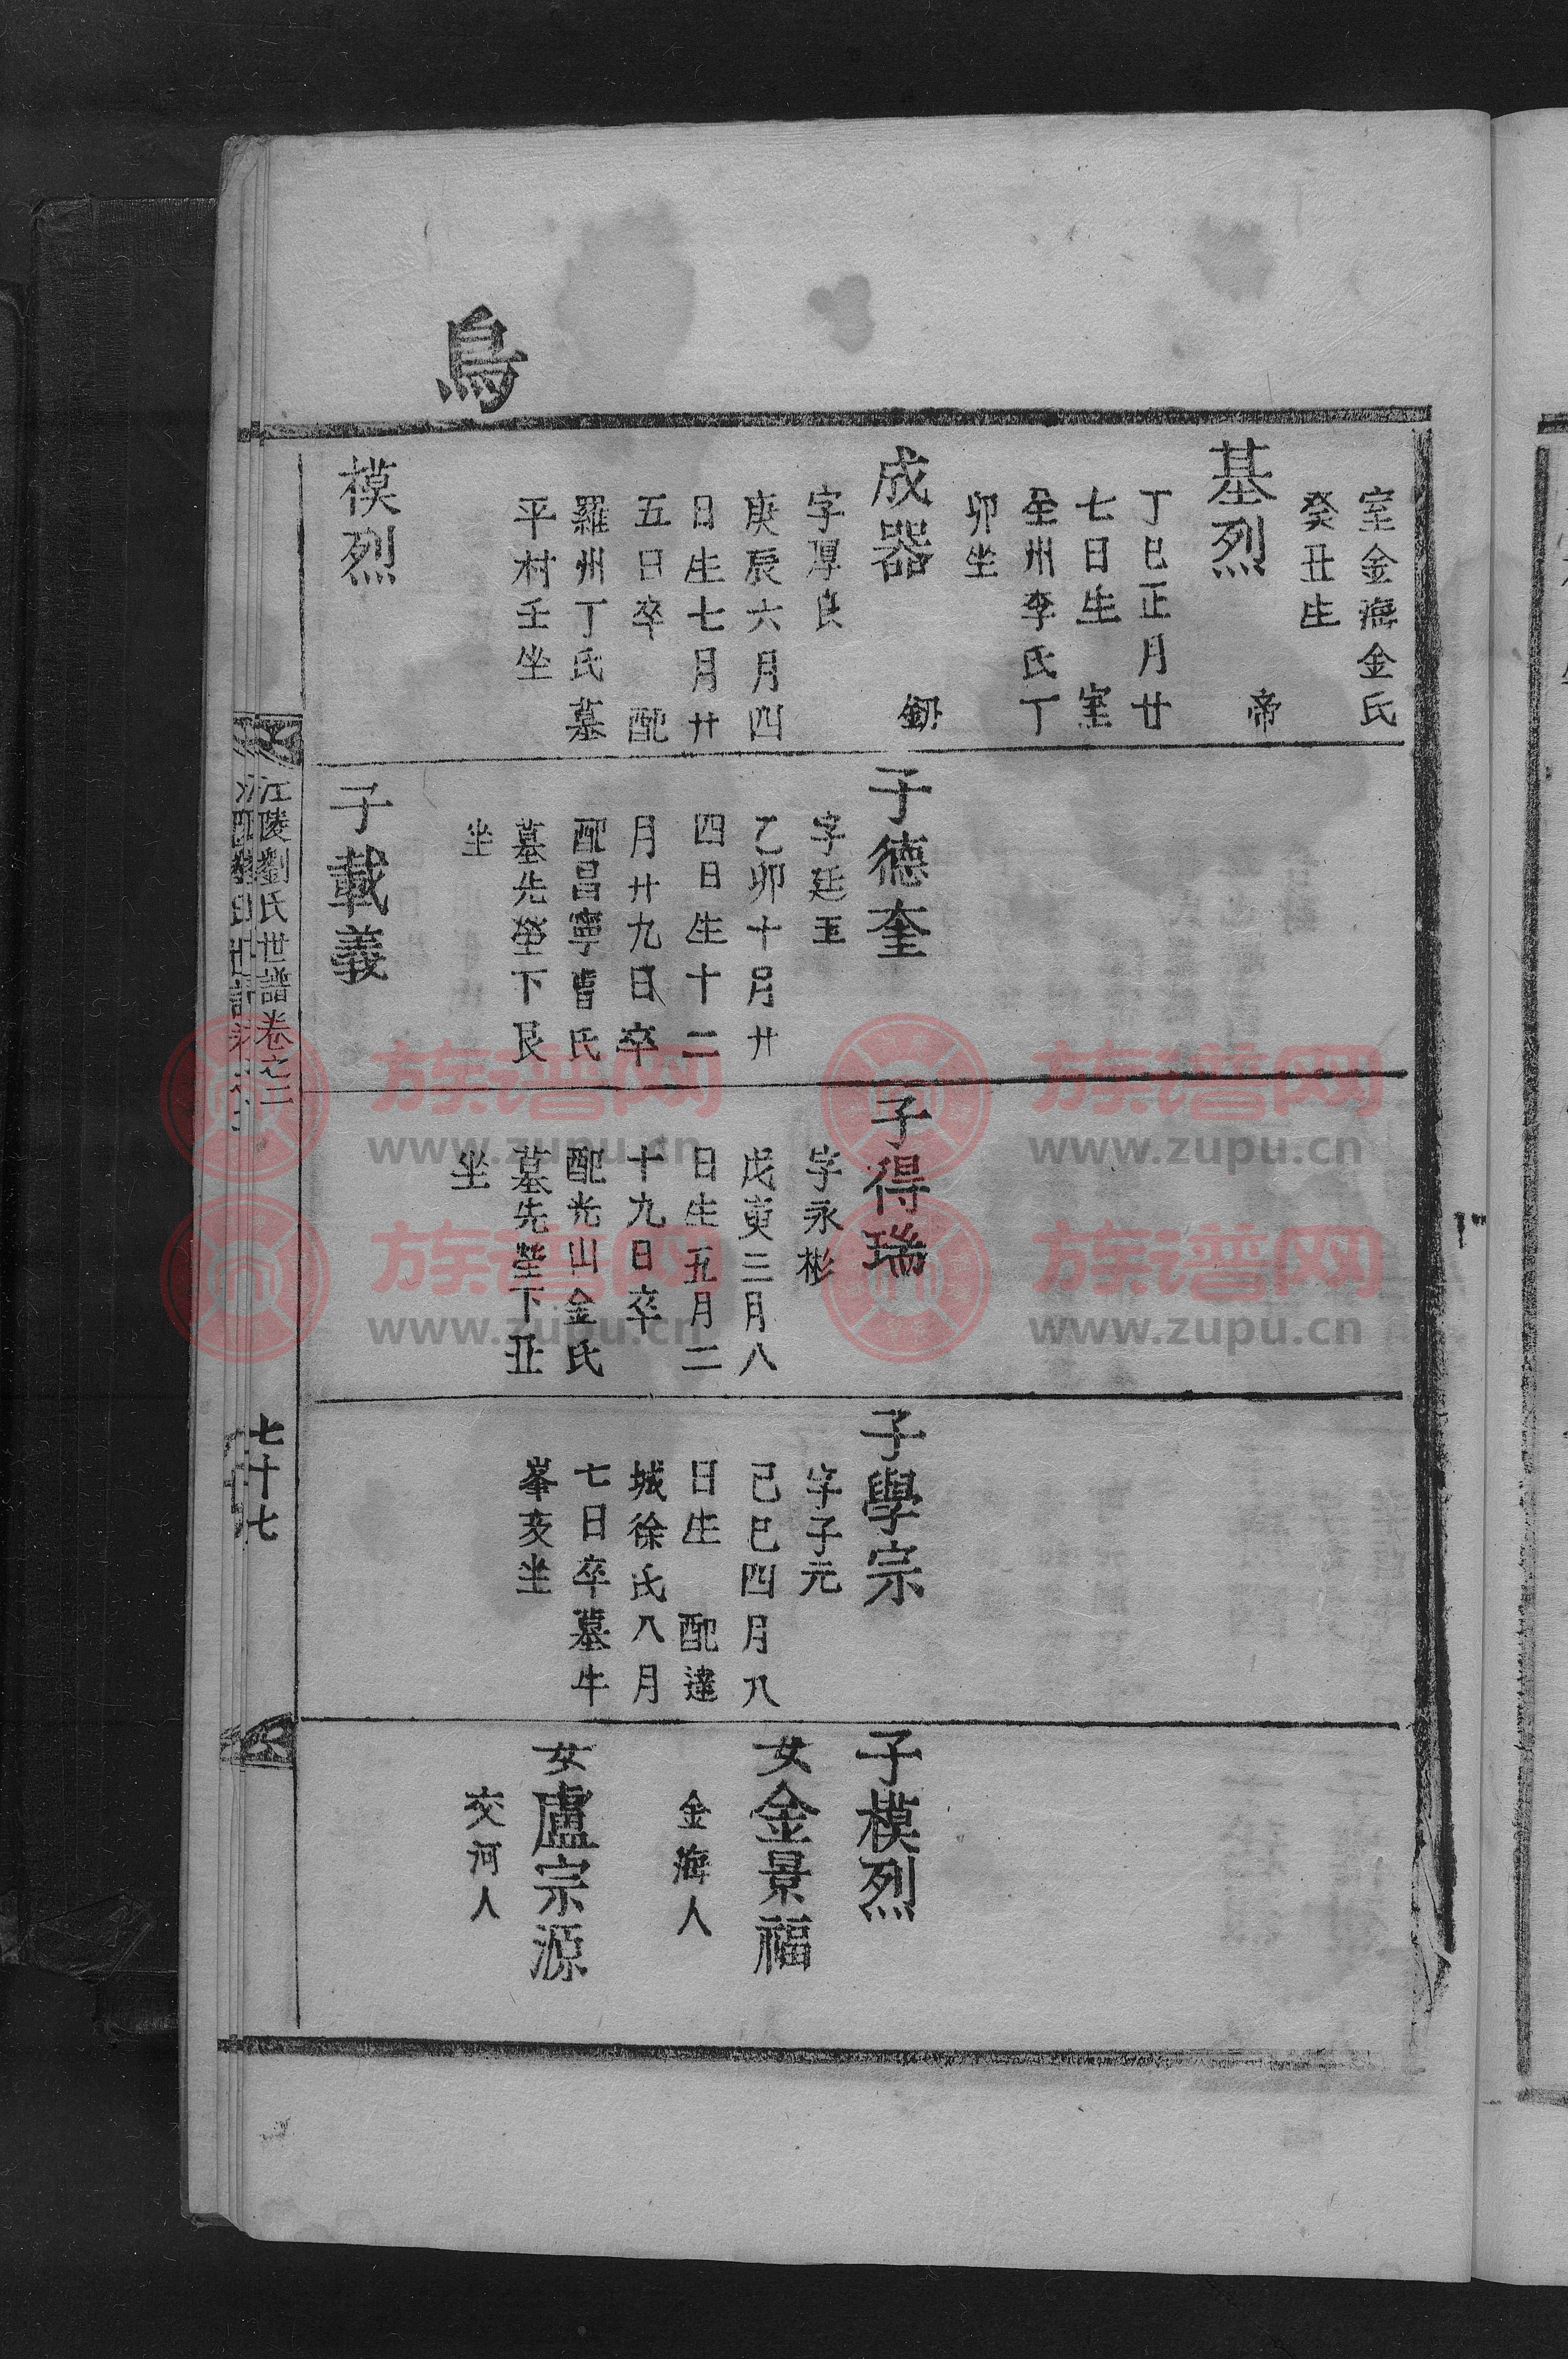 鳥
室金海金氏
癸丑生
基烈
帝
丁巳正月廿
七日生　室
全州李氏丁
卯坐
成器
釰
字厚良
庚辰六月四
日生七月廿
五日卒　配
羅州丁氏墓
平村壬坐
模烈
子德奎
字廷玉
乙卯十月廿
四日生十二
月廿九日卒
配昌寧曺氏
墓先塋下艮
坐
子載義
子得瑞
字永彬
戊寅三月八
日生五月二
十九日卒
配光山金氏
墓先塋下丑
坐
子學宗
字子元
己巳四月八
日生　配達
城徐氏八月
七日卒墓牛
峯亥坐
子模烈
女金景福
金海人
女盧宗源
交河人
江陵劉氏世譜卷之二
七十七
族谱网
www.zupu.cn
族谱网
www.zupu.cn
族谱网
www.zupu.cn
族谱网
www.zupu.cn